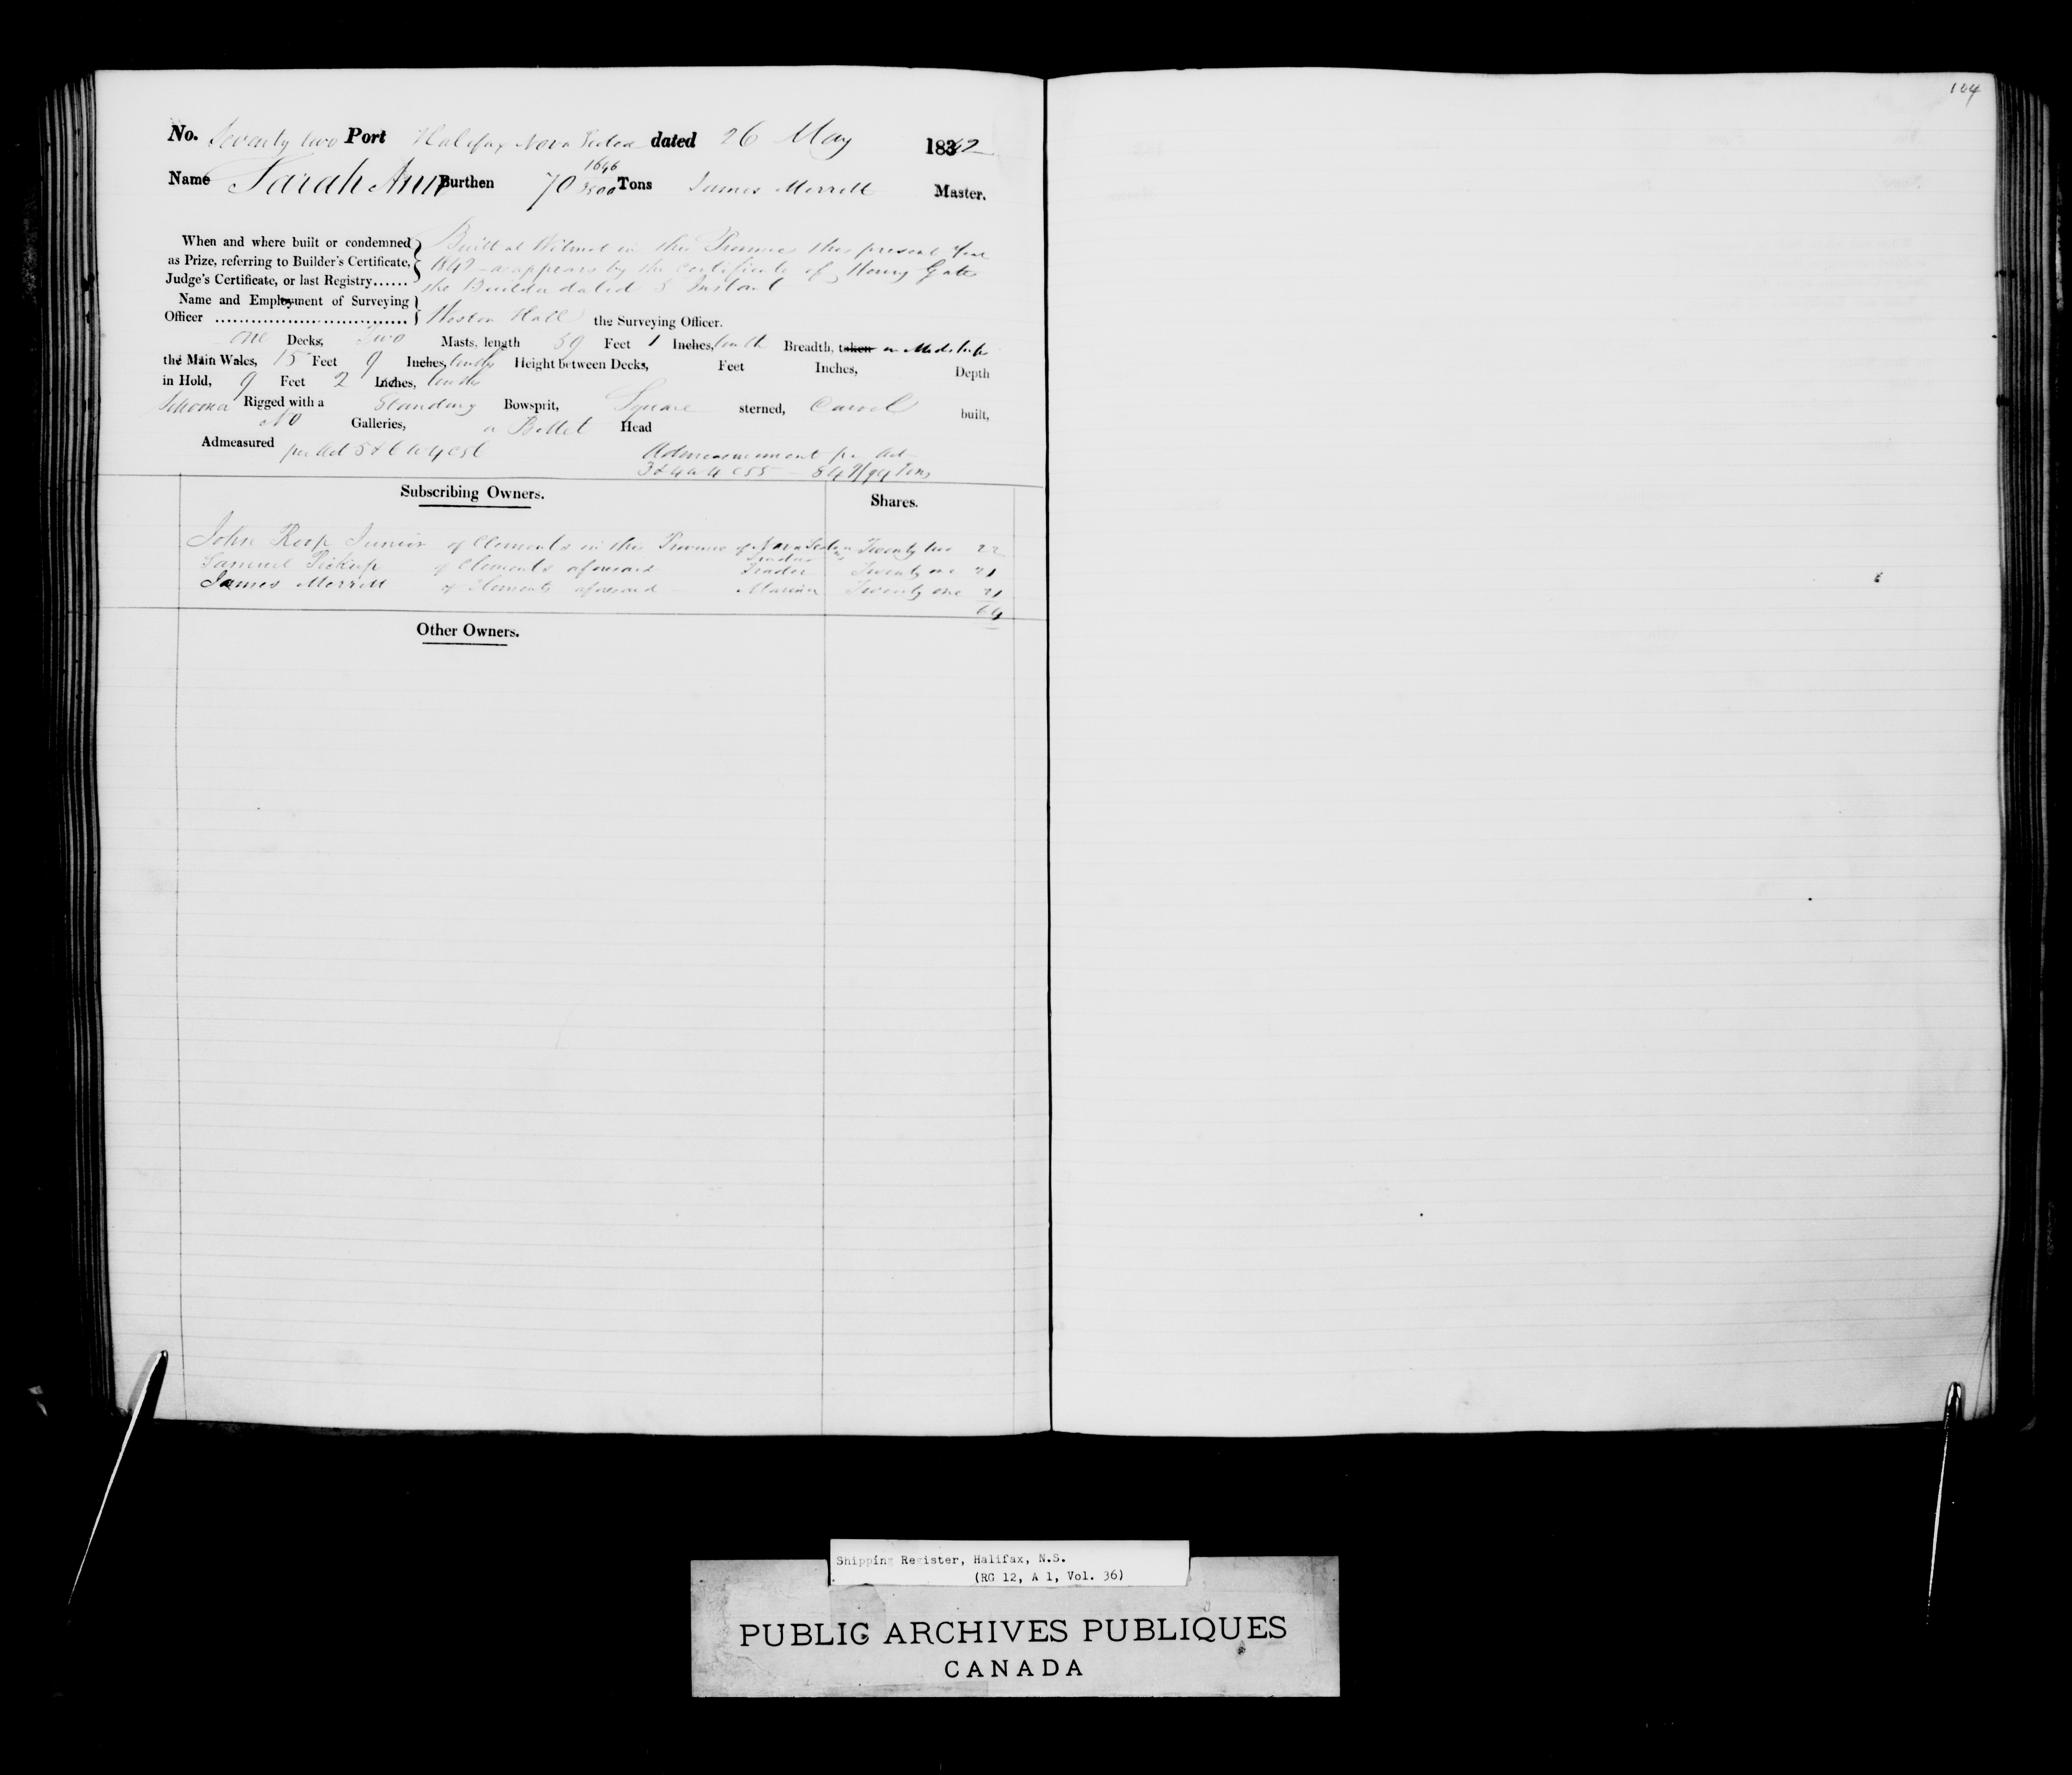 104
No. Seventy two Port Halifax Nova Scotia dated 26 May 1842
Name Sarah Ann Burthen 70 1646/3500 Tons James Merrett Master.
When and where built or condemned as Prize, referring to Builder's Certificate, Judge's Certificate, or last Registry......
Built at Wilmot in this Province this present Year
1842 as appears by the certificate of Henry Gates
the Builder dated 5 Instant
Name and Employment of Surveying Officer ..............................
Weston Hall the Surveying Officer.
One Decks, Two Masts, length 59 Feet 1 Inches, tenth Breadth, taken in Midships
the Main Wales, 15 Feet 9 Inches, tenths Height between Decks, Feet Inches, Depth
in Hold, 9 Feet 2 Inches, tenths
Schooner Rigged with a Standing Bowsprit, Square sterned, Carvel built,
No Galleries, a Billet Head
Admeasured per Act 5 & 6 W 4 C 56
Admeasurement per Act
3 & 4 W 4 C 55 - 84 9/94 Tons
Subscribing Owners. Shares.
John Roop Junior of Clements in the Province of Nova Scotia Trader Twenty two 22
Samuel Pickup of Clements aforesaid Trader Twenty one 21
James Merrett of Clements aforesaid Mariner Twenty one 21
64
Other Owners.
Shipping Register, Halifax, N.S.
(RG 12, A 1, Vol. 36)
PUBLIC ARCHIVES PUBLIQUES
CANADA